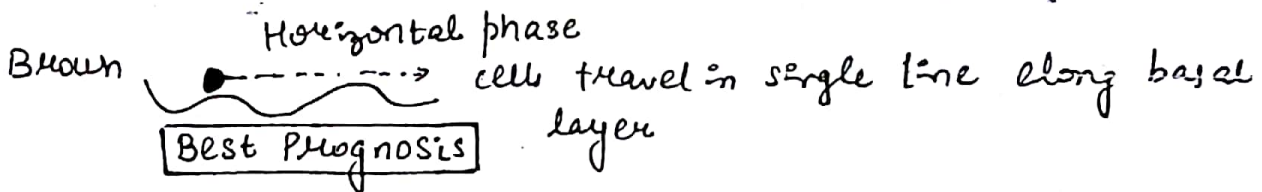 Horizontal phase
Brown cells travel in single line along basal
layer
Best Prognosis